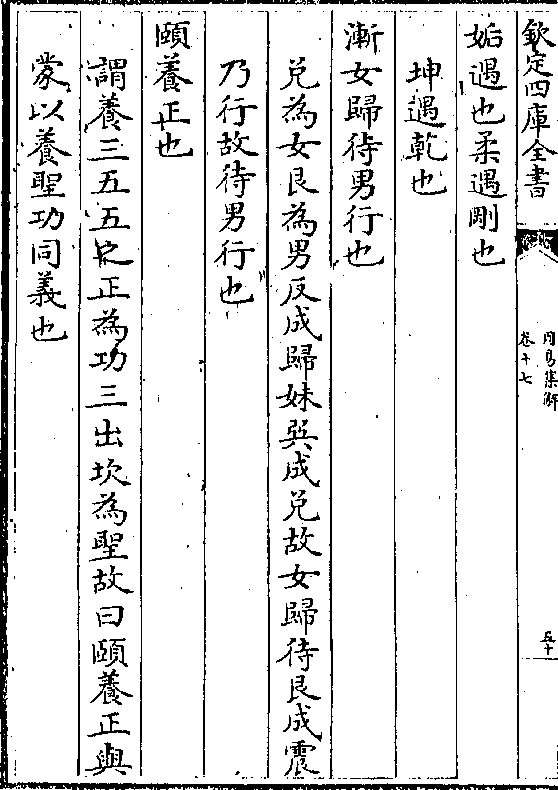 欽定四庫全書
周易集解
卷十七
五十
姤遇也柔遇剛也
坤遇乾也
漸女歸待男行也
兌為女艮為男反成歸妹巽成兌故女歸待艮成震
乃行故待男行也
頤養正也
謂養三五五之正為功三出坎為聖故曰頤養正與
蒙以養聖功同義也